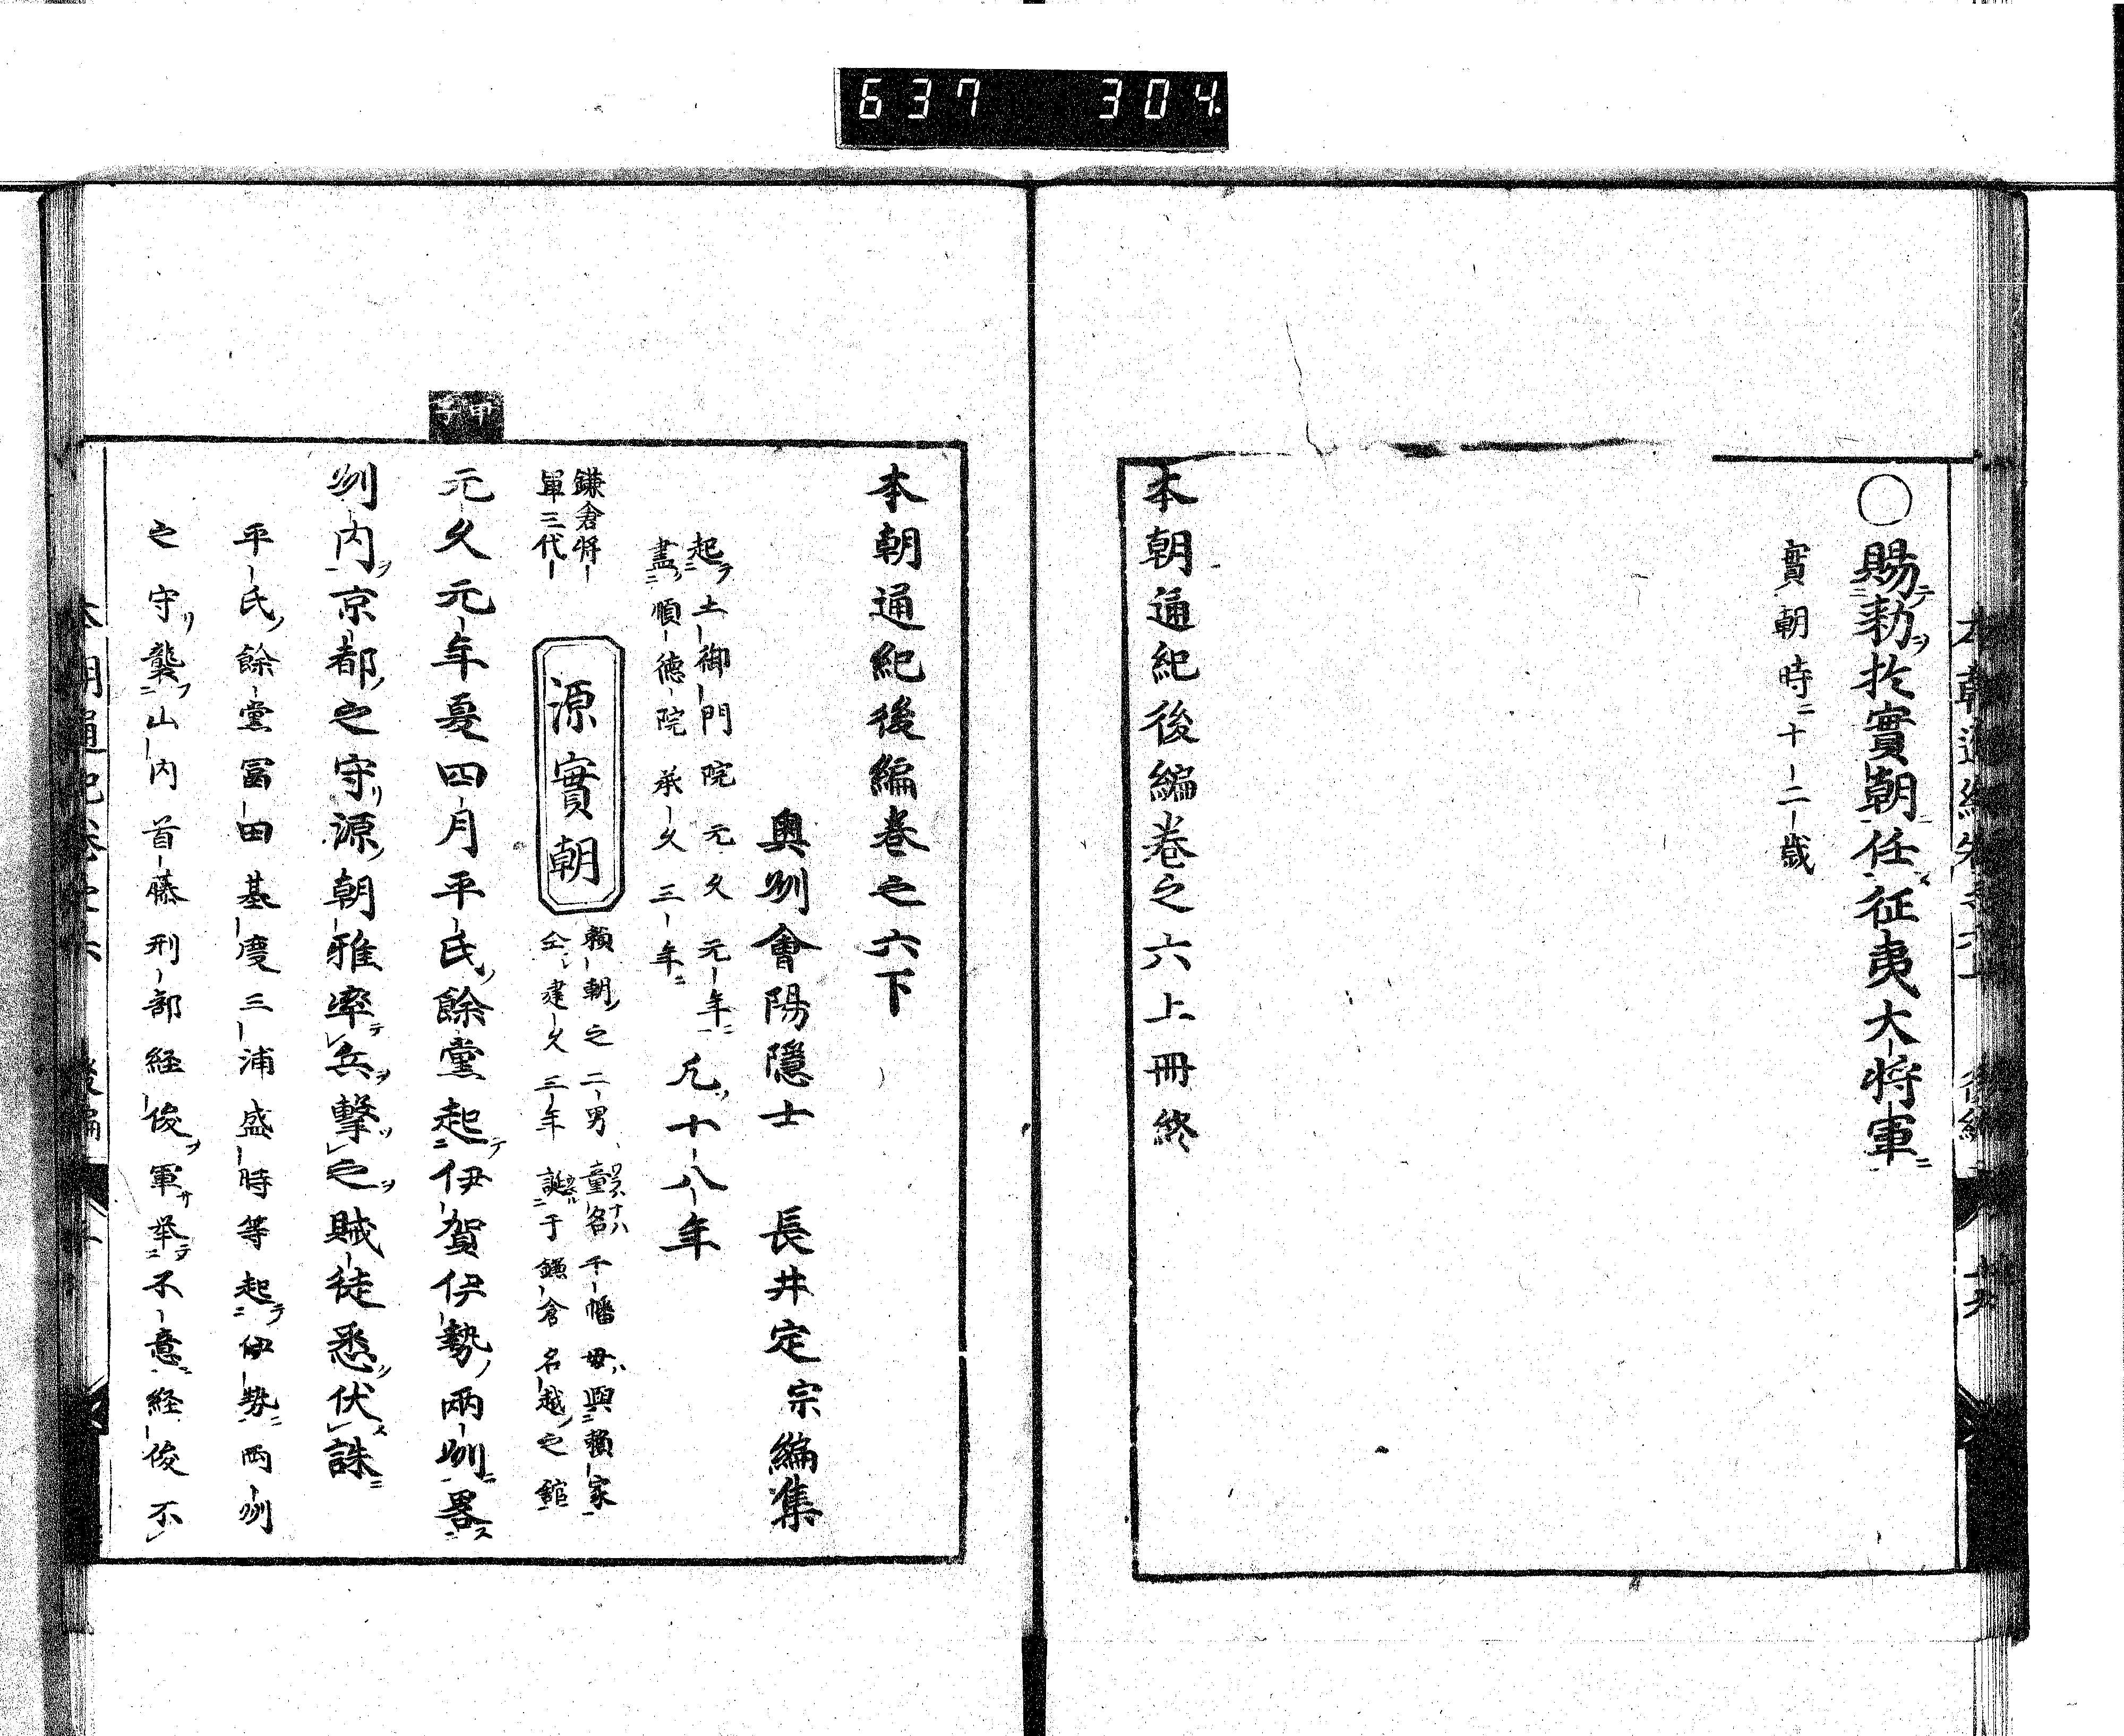 637 304
○賜勅於實朝任征夷大将軍
實朝時十二歳
本朝通紀後編巻之六上冊終
本朝通紀後編巻之六下
奥州會陽隱士 長井定宗編集
起土御門院元久元年
盡順徳院承久三年
凡十八年
鎌倉将
軍三代
源實朝
頼朝之二男童名千幡母與頼家
仝建久三年誕于鎌倉名越之舘
甲子
元久元年夏四月平氏餘黨起伊賀伊勢兩州畧
州内京都之守源朝雅率兵撃之賊徒悉伏誅
平氏餘黨冨田基度三浦盛時等起伊勢兩州
之守襲山内首藤刑部経俊軍举不意経俊不